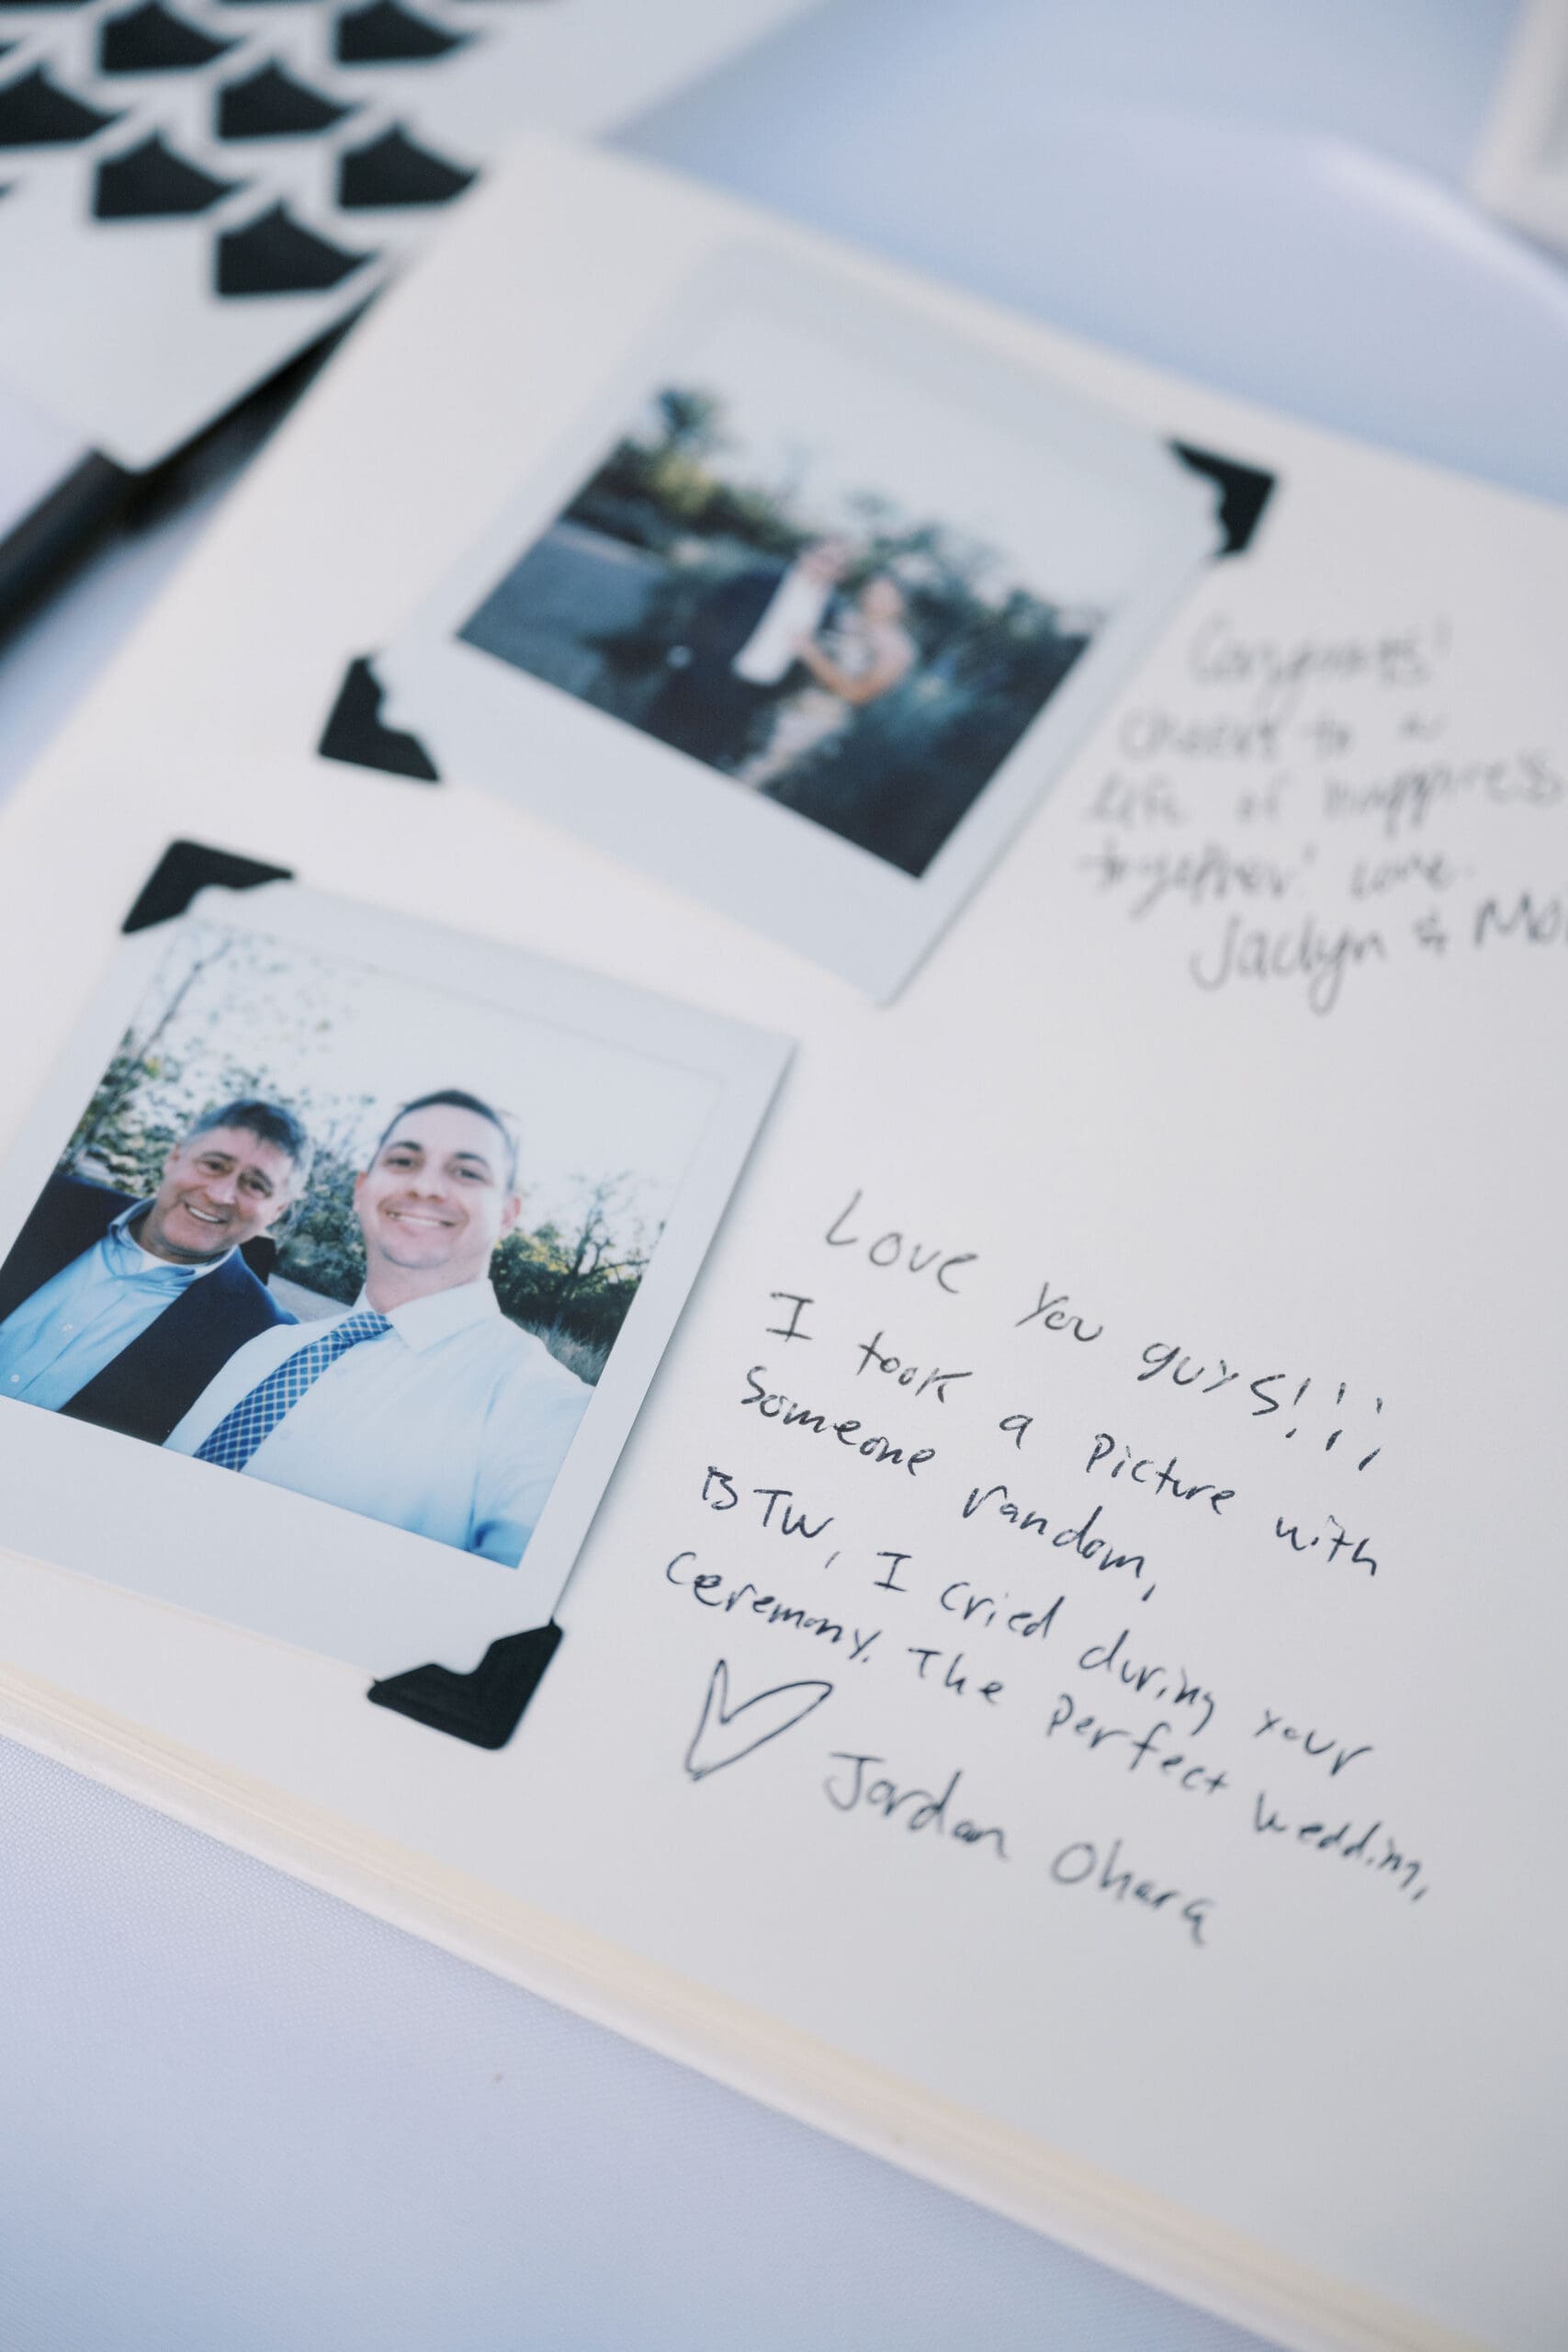 Congrats!
cheers to a
life of happiness
together! Love.
Jaclyn &
Love you guys!!!
I took a picture with
Someone random,
BTW, I cried during your
Ceremony. The perfect wedding,
Jordan Ohara